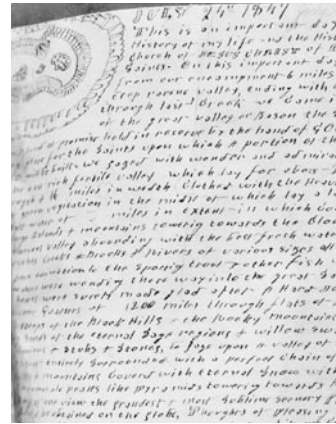 July 24th 1847
This is an important day
History of my life and the Hist
Church of Jesus Christ of
Saints. On this important day
from our encampment 6 miles
deep ravene valley, ending with
through last Creek we Came
of the great valley or Bason the
promise held in reserve by the hand of GOD
for the Saints upon which A portion of the
we gazed with wonder and admira
rich fertile valley which lay for about
miles in width Clothed with the Heav
vegitation in the midst of which lay a la
miles in extent in which Co
Islands & mountains towering towards the Clou
valley abounding with the best fresh wate
Creeks & Brooks & Rivers of various sizes all
animation to the sporting trout & other fish
were wending there way into the great Sa
were surely made glad after A Hard
Journey of 1200 miles through flats of
of the Black Hills & the Rocky mountains
of the eternal Sage regions & willow Swa
& Stubs & Stones, to gaze upon a valley of
entirely Surrounded with a perfect Chain of
mountains Covered with eternal Snow with
peaks like Pyramids towering towards
view the grandest & most Sublime Scenery
on the globe, Thoughts of Pleasing